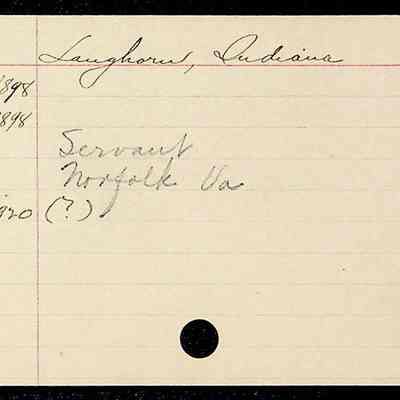 Langhorn, Indiana
1898
1898
Servant
Norfolk Va
920 (?)